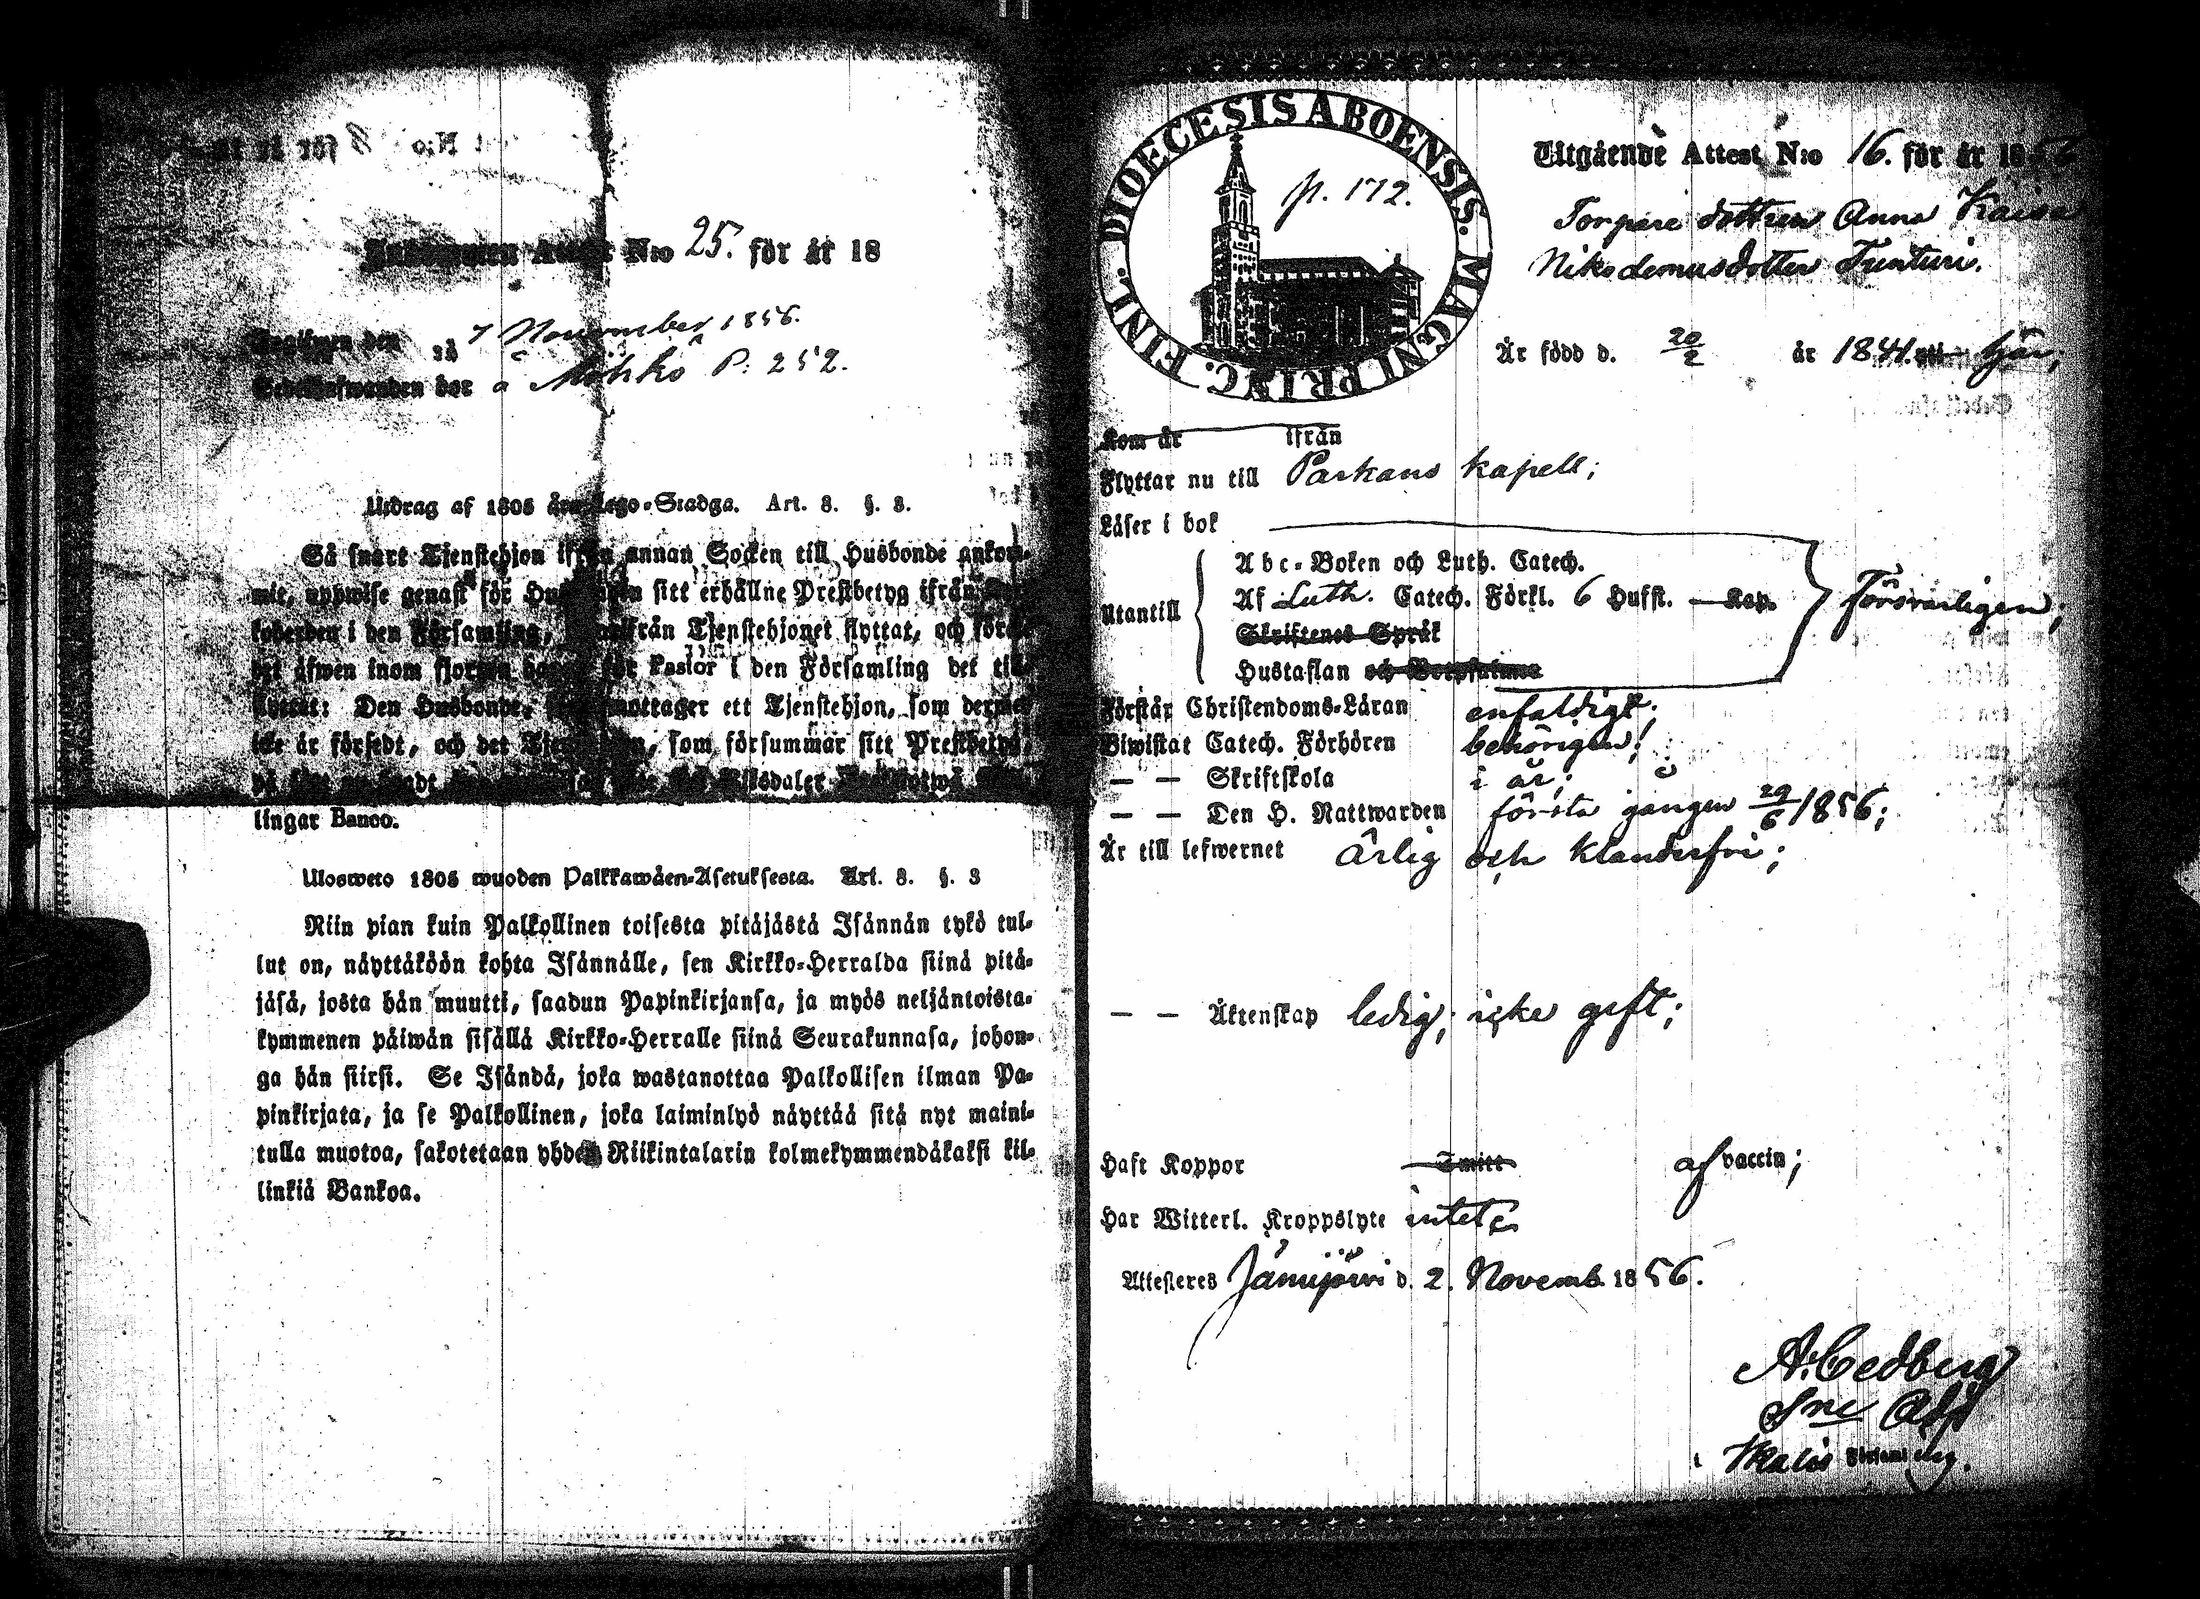 N:o 25. för år 18
7 November 1856.
bor å Möhkö P: 252.
Utdrag af 1805 Lego-Stadga. Art. 8. §. 3.
Så snart Tjenstehjon ifrån annan Socken till Husbonde ankom-
mit, uppwise genast för sitt erhållne Prestbetyg ifrån
i den Församling, Tjenstehjonet flyttat, och
det äfwen inom fjorton för Pastor i den Församling det till
flyttat: Den Husbonde, emottager ett Tjenstehjon, som dermed
icke är försedt, och det som försummar sitt Prestbetyg,
Riksdaler
lingar Banco.
Ulosweto 1805 wuoden Palkkawäen-Asetuksesta. Art. 8. §. 3
Niin pian kuin Palkollinen toisesta pitäjästä Isännän tykö tul-
lut on, näyttäköön kohta Isännälle, sen Kirkko-Herralda siinä pitä-
jäsä, josta hän muutti, saadun Papinkirjansa, ja myös neljäntoista-
kymmenen päiwän sisällä Kirkko-Herralle siinä Seurakunnasa, johon-
ga hän siirsi. Se Isändä, joka wastanottaa Palkollisen ilman Pa-
pinkirjata, ja se Palkollinen, joka laiminlyö näyttää sitä nyt maini-
tulla muotoa, sakotetaan yhden Riikintalarin kolmekymmendäkaksi kil-
linkiä Bankoa.
DIOECESIS ABOENSIS. MAGNI PRINC. FINL.
p. 172.
Utgående Attest N:o 16. för år 1856
Torpare dottren Anna Kaisa
Nikodemusdotter Tunturi.
Är född d. 20/2 år 1841. uti här;
Kom år ifrån
Flyttar nu till Parkano kapell;
Läser i bok
Utantill
Abc-Boken och Luth. Catech.
Af Luth. Catech. Förkl. 6 Hufst. — Kap.
Skriftenes Språk
Hustaflan och
Försvarligen;
Förstår Christendoms-Läran enfaldigt;
Biwistat Catech. Förhören behörigen;
— — Skriftskola i år;
— — Den H. Nattwarden första gången 29/6 1856;
Är till lefwernet Ärlig och klanderfri;
— — Äktenskap ledig; icke gift;
Haft Koppor Smitt af vaccin;
Har Witterl. Kroppslyte intet;
Attesteres Jämijärvi d. 2. Novemb. 1856.
A. Cedberg
Sne Adj
i Ikalis